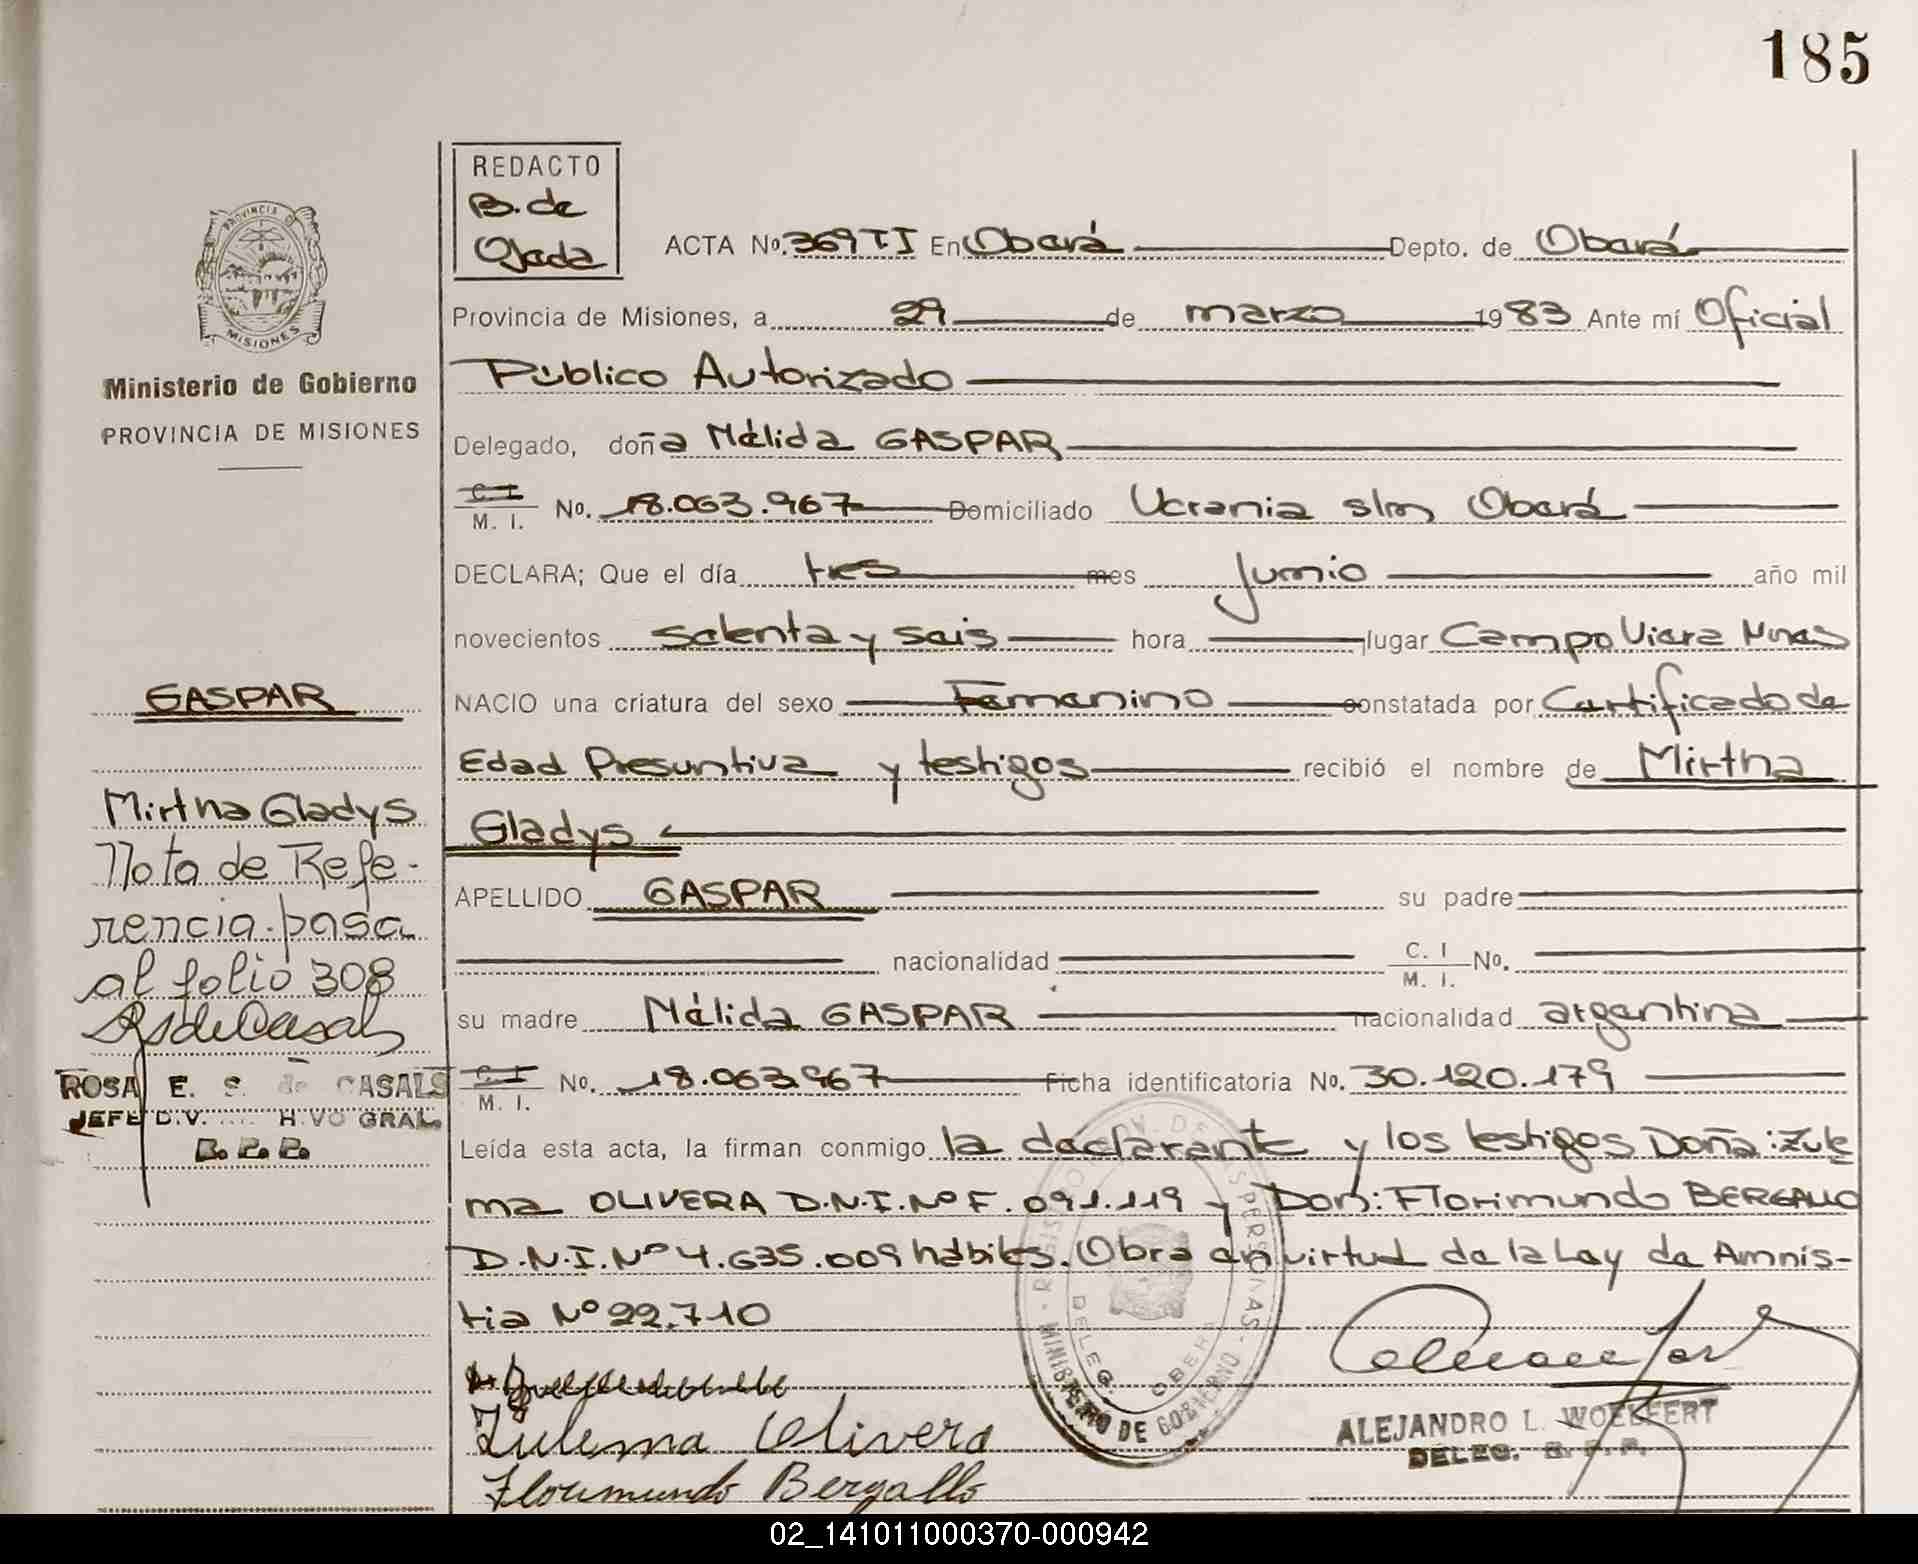 185
REDACTO
B. de
Ojeda
ACTA No. 369 TI En Oberá Depto. de Oberá
PROVINCIA DE
MISIONES
Provincia de Misiones, a 29 de marzo 1983 Ante mí Oficial
Público Autorizado
Ministerio de Gobierno
PROVINCIA DE MISIONES
Delegado, doña Nélida GASPAR
C. I.
M. I. No. 18.063.967 Domiciliado Ucrania s/n Oberá
DECLARA; Que el día tres mes Junio año mil
novecientos setenta y seis hora lugar Campo Viera Mnes
GASPAR
NACIO una criatura del sexo Femenino constatada por Certificado de
Edad Presuntiva y testigos recibió el nombre de Mirtha
Mirtha Gladys
Gladys
Nota de Refe-
rencia. pasa
al folio 308
RsdeCasals
ROSA E. S. de CASALS
JEFE DIV. HIVO GRAL.
R. P. P.
APELLIDO GASPAR su padre
nacionalidad C. I
M. I. No.
su madre Nélida GASPAR nacionalidad argentina
C. I
M. I. No. 18.063.967 Ficha identificatoria No. 30.120.179
Leída esta acta, la firman conmigo la declarante y los testigos Doña: Zule
ma OLIVERA D.N.I. Nº F. 091.119 y Don: Florimundo BERGALLO
D.N.I. Nº 4.635.009 hábiles. Obra en virtud de la Ley de Amnis-
tia Nº 22.710
Zulema Olivera
Florimundo Bergallo
MINISTERIO DE GOBIERNO
DELEG. OBERA
ALEJANDRO L. WOELFERT
DELEG. R. P. P.
02_141011000370-000942